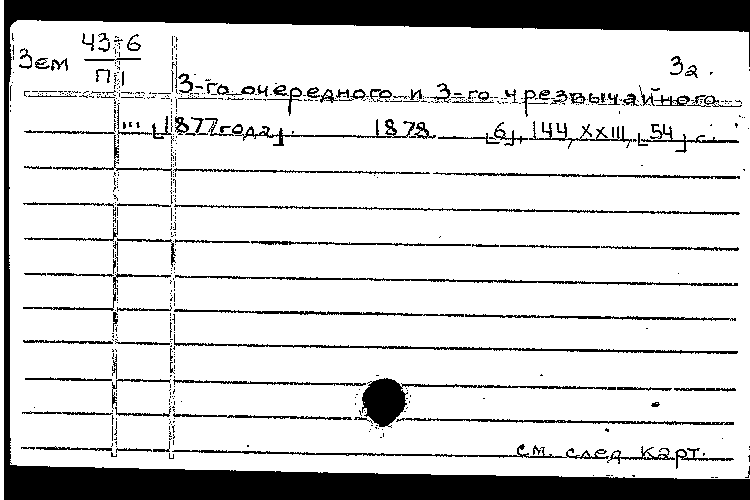 Зем 43-6
П1
За.
3-го очередного и 3-го чрезвычайного
... [1877 года]. 1878. [6], 144, XXIII, [54] с.
см. след карт.